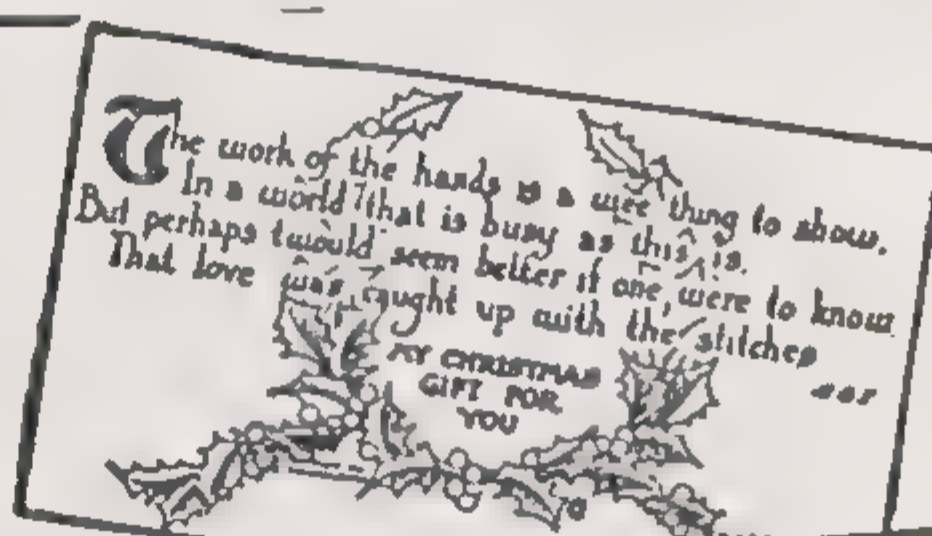 The work of the hands is a wee thing to show,
In a world that is busy as this is.
But perhaps twould seem better if one were to know
That love was caught up with the stitches
MY CHRISTMAS
GIFT FOR
YOU